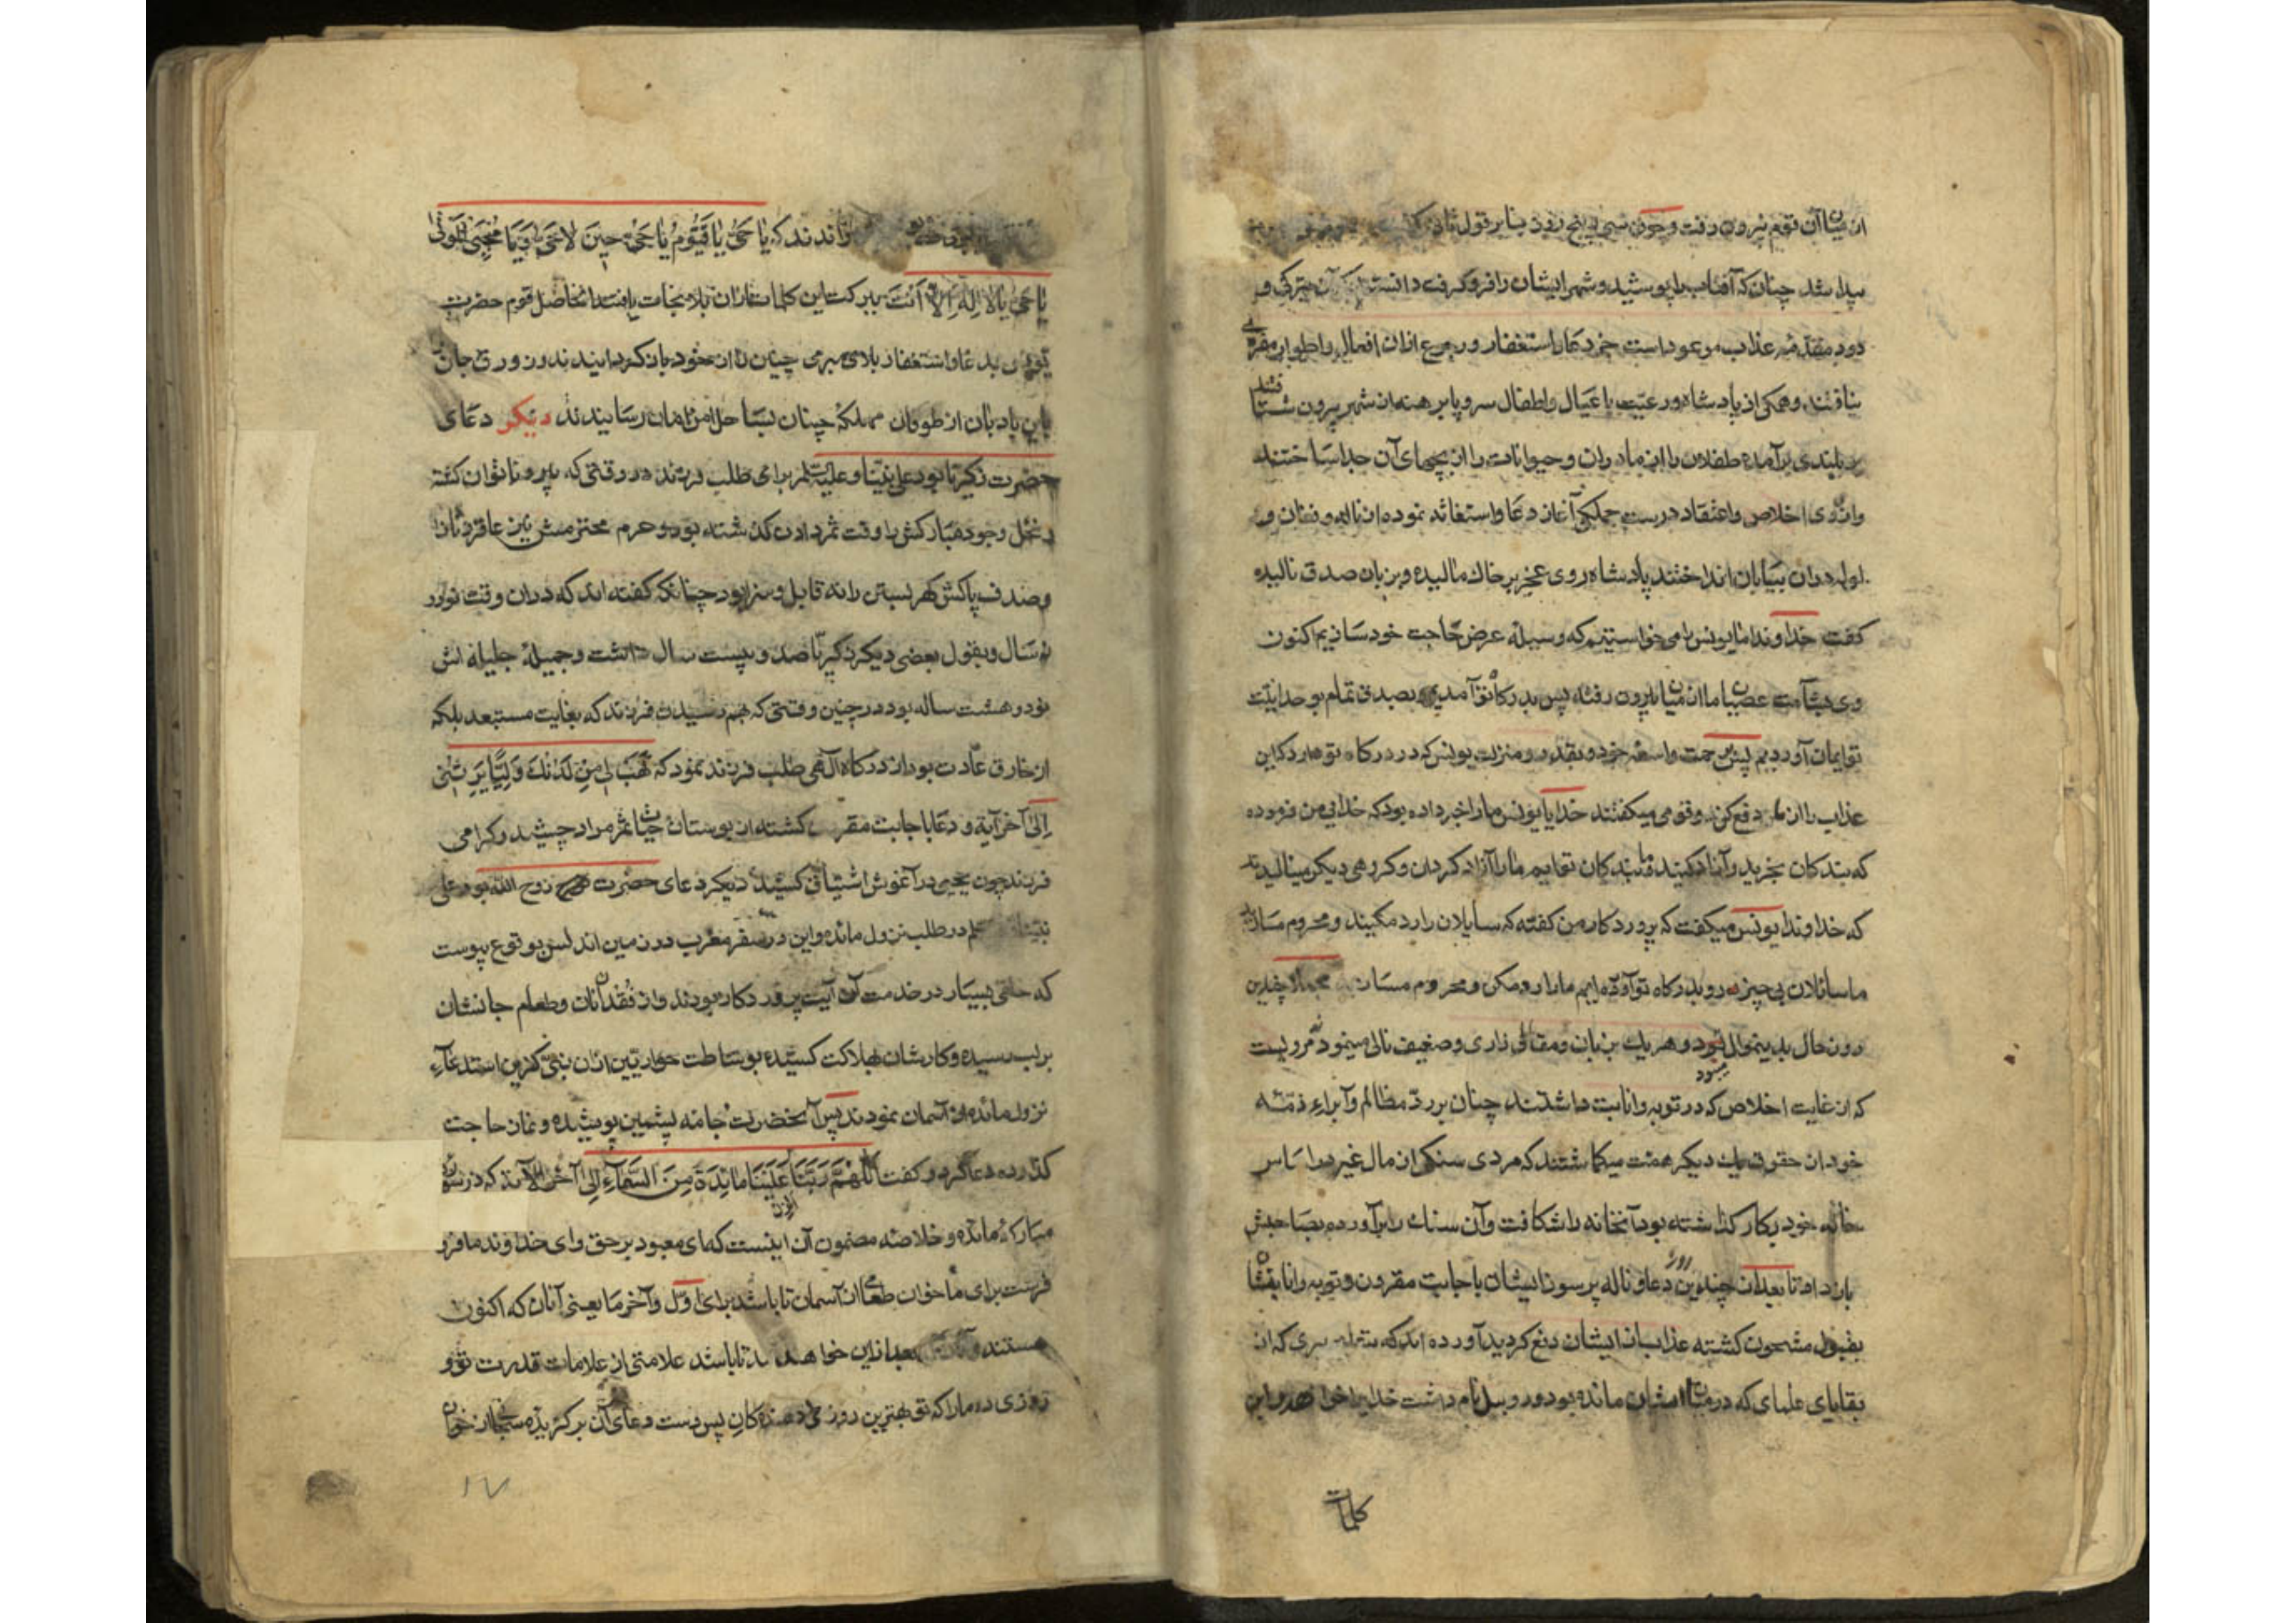 از میان آن قوم بیرون رفت و چون سی و پنج روز بنا بر قول
پیدا شد چنان که آفتاب را پوشید و شهر ایشان را فرو گرفت دانستند که آن تیرگی و
دود مقدمه عذاب موعود است جز دعا و استغفار و رجوع ازان افعال و اطوار مفری
نیافتند و همگی از پادشاه و رعیت با عیال و اطفال سر و پا برهنه از شهر بیرون شتافتند
بر بلندی برآمده طفلان را از مادران و حیوانات را از بچهای آن جدا ساختند
و از روی اخلاص و اعتقاد درست جملگی آغاز دعا و استغاثه نموده از ناله و فغان و
ولوله دران بیابان انداختند پادشاه روی عجز بر خاک مالیده و بزبان صدق نالیده
گفت خداوندا ما یونس را می خواستیم که وسیله عرض حاجت خود سازیم اکنون
وی بشآمت عصیان ما از میان ما بیرون رفته پس بدرگاه تو آمدیم و بصدق تمام بوحدانیت
تو ایمان آوردیم پس برحمت واسعه خود و بقدر و منزلت یونس که در درگاه تو دارد که این
عذاب را از ما دفع کن و قومی میگفتند خدایا یونس ما را خبر داده بود که خدای من فرموده
که بندگان بخرید و آزاد کنید ما بندگان توایم ما را آزاد گردان و گروهی دیگر مینالیدند
که خداوندا یونس میگفت که پروردگار من گفته که سایلان را رد مکنید و محروم مسازید
ما سائلان بی چیز رو بدرگاه تو آورده ایم ما را رد مکن و محروم مساز مجملا چندین
روز حال بدینمنوال بود و هر یک بزبان و مقالی زاری و ضعیف نالی مینمود مرویست
که از غایت اخلاص که در توبه و انابت داشتند چنان بر رد مظالم و ابراء ذمه
خود از حقوق یک دیگر همت میگماشتند که مردی سنگی از مال غیر در اساس
خانه خود بکار گذاشته بود آنخانه را شکافت و آن سنگ را برآورده بصاحبش
باز داد تا بعد از چندین روز دعا و ناله پرسوز ایشان باجابت مقرون و توبه و انابه ایشان
بقبول مشحون گشته عذاب از ایشان دفع گردید آورده اند که متعلمی سری که از
بقایای علمای که در میان ایشان مانده بود و روبیل نام داشت خدا را خواندند و این
کلمات
خواندند که یا حیّ یا قیّوم یا حیّ حین لا حیّ و یا محیی الموتی
یا حیّ یا لا اله الا انت ببرکت این کلمات ازان بلا نجات یافتند الحاصل قوم حضرت
یونس بدعا و استغفار بلای مبرمی چنان را از خود باز گردانیدند و زورق جان
باین بادبان از طوفان مهلکه چنان بساحل امن و امان رسانیدند دیگر دعای
حضرت زکریا بود علی نبینا و علیه السلام برای طلب فرزند در وقتی که پیر و ناتوان گشته
و نخل وجود مبارکش را وقت ثمر دادن گذشته بود و حرم محترمش نیز عاقر و نازا
و صدف پاکش گهر بستن را نه قابل و سزا بود چنانکه گفته اند که دران وقت نود و
نه سال و بقول بعضی دیگر زکریا صد و بیست سال داشت و جمیله جلیله اش
نود و هشت ساله بود در چنین وقتی که بهم رسیدن فرزند که بغایت مستبعد بلکه
از خارق عادت بود از درگاه الهی طلب فرزند نمود که فهب لی من لدنک ولیّا یرثنی
الی آخر آیة و دعا باجابت مقرون گشته از بوستان حیات ثمر مراد چشید و گرامی
فرزند چون یحیی در آغوش اشتیاق کشید دیگر دعای حضرت روح الله بود علی
نبینا در طلب نزول مائده و این در سفر مغرب در زمین اندلس بوقوع پیوست
که خلقی بسیار در خدمت آن آیت پروردگار بودند و از فقدان نان و طعام جانشان
بر لب رسیده و کارشان بهلاکت کشیده بوساطت حواریین ازان نبی گزین استدعاء
نزول مائده از آسمان نمودند پس آنحضرت جامه پشمین پوشیده و نماز حاجت
گذارده دعا کرد و گفت اللهم ربّنا انزل علینا مائدة من السّماء الی آخر الآیة که در سوره
مبارکه مائده و خلاصه مضمون آن اینست که ای معبود برحق و ای خداوند ما فرو
فرست برای ما خوان طعامی از آسمان تا باشد برای اوّل و آخر ما یعنی آنان که اکنون
هستند و بعد ازین خواهند تا باشد علامتی از علامات قدرت تو و
روزی ده ما را که تو بهترین روزی دهندگان پس بدست دعای آن برگزیده سبحان خوان
۱۷